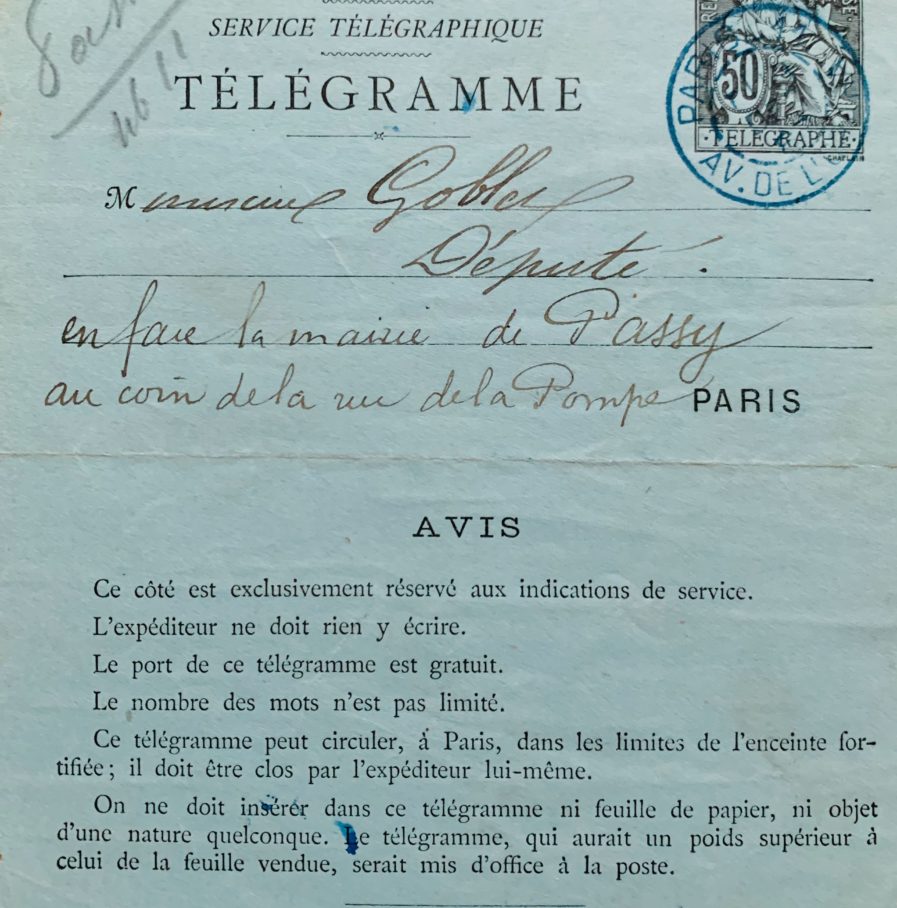 SERVICE TÉLÉGRAPHIQUE
TÉLÉGRAMME
50
TELEGRAPHE
CHAPLAIN
PARIS
AV. DE L'
M Goblet
Député.
en face la mairie de Passy
au coin de la rue de la Pompe PARIS
AVIS
Ce côté est exclusivement réservé aux indications de service.
L'expéditeur ne doit rien y écrire.
Le port de ce télégramme est gratuit.
Le nombre des mots n'est pas limité.
Ce télégramme peut circuler, à Paris, dans les limites de l'enceinte for-
tifiée; il doit être clos par l'expéditeur lui-même.
On ne doit insérer dans ce télégramme ni feuille de papier, ni objet
d'une nature quelconque. Le télégramme, qui aurait un poids supérieur à
celui de la feuille vendue, serait mis d'office à la poste.